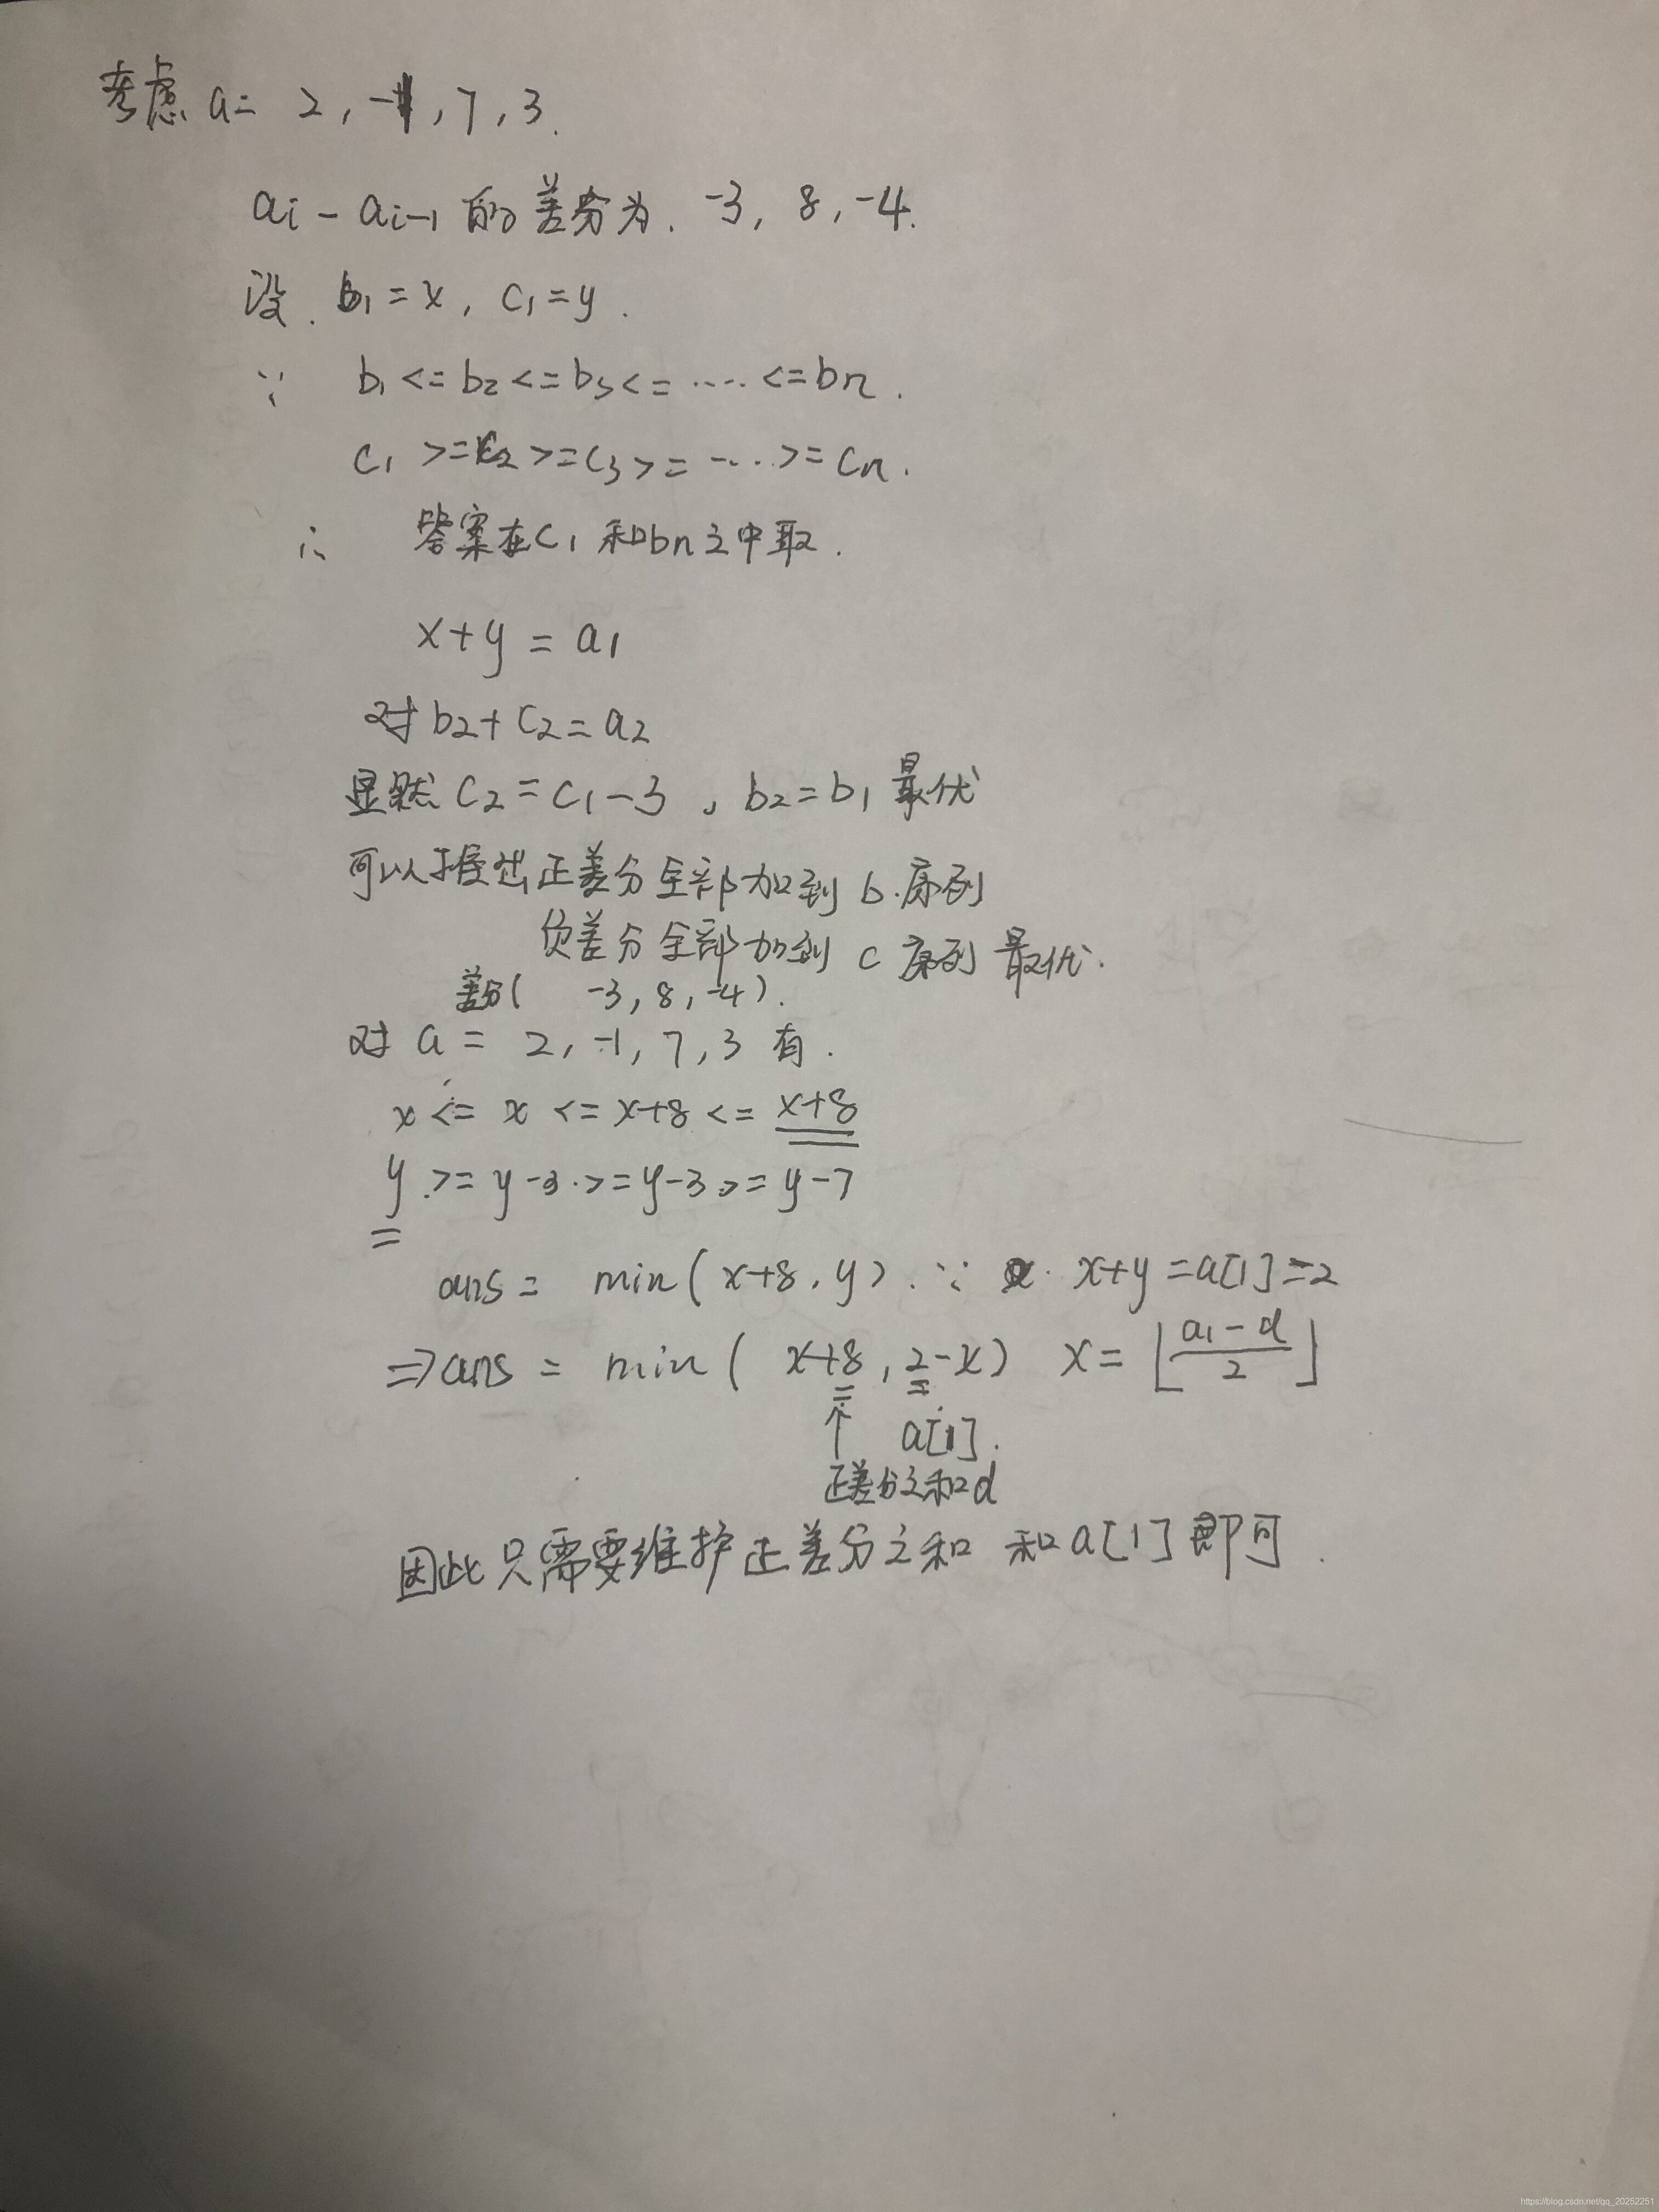 考虑 a= 2, -1, 7, 3.
ai - ai-1 的差分为. -3, 8, -4.
设. b1 = x, c1 = y.
∵ b1 <= b2 <= b3 <= ···· <= bn.
c1 >= c2 >= c3 >= ···· >= cn.
∴ 答案在c1 和bn之中取.
x+y = a1
对 b2 + c2 = a2
显然 c2 = c1 - 3, b2 = b1 最优
可以推出正差分全部加到 b 序列
负差分全部加到 c 序列 最优.
差分( -3, 8, -4).
对 a = 2, -1, 7, 3 有.
x <= x <= x+8 <= x+8
y >= y-3 >= y-3 >= y-7
ans = min( x+8, y). ∵ x+y = a[1] = 2
⇒ ans = min( x+8, 2-x) x = ⌊(a1 - d)/2⌋
↑ a[1].
正差分之和d
因此只需要维护正差分之和 和a[1]即可.
https://blog.csdn.net/qq_20252251